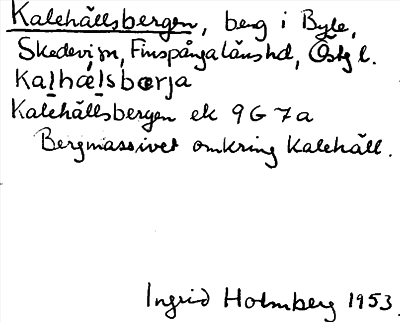 Kalehällsbergen, berg i Byle,
Skedevi sn, Finspånga länshd, Östg l.
kalhælsbærja
Kalehällsbergen ek 9G 7a
Bergmassivet omkring Kalehäll.
Ingrid Holmberg 1953